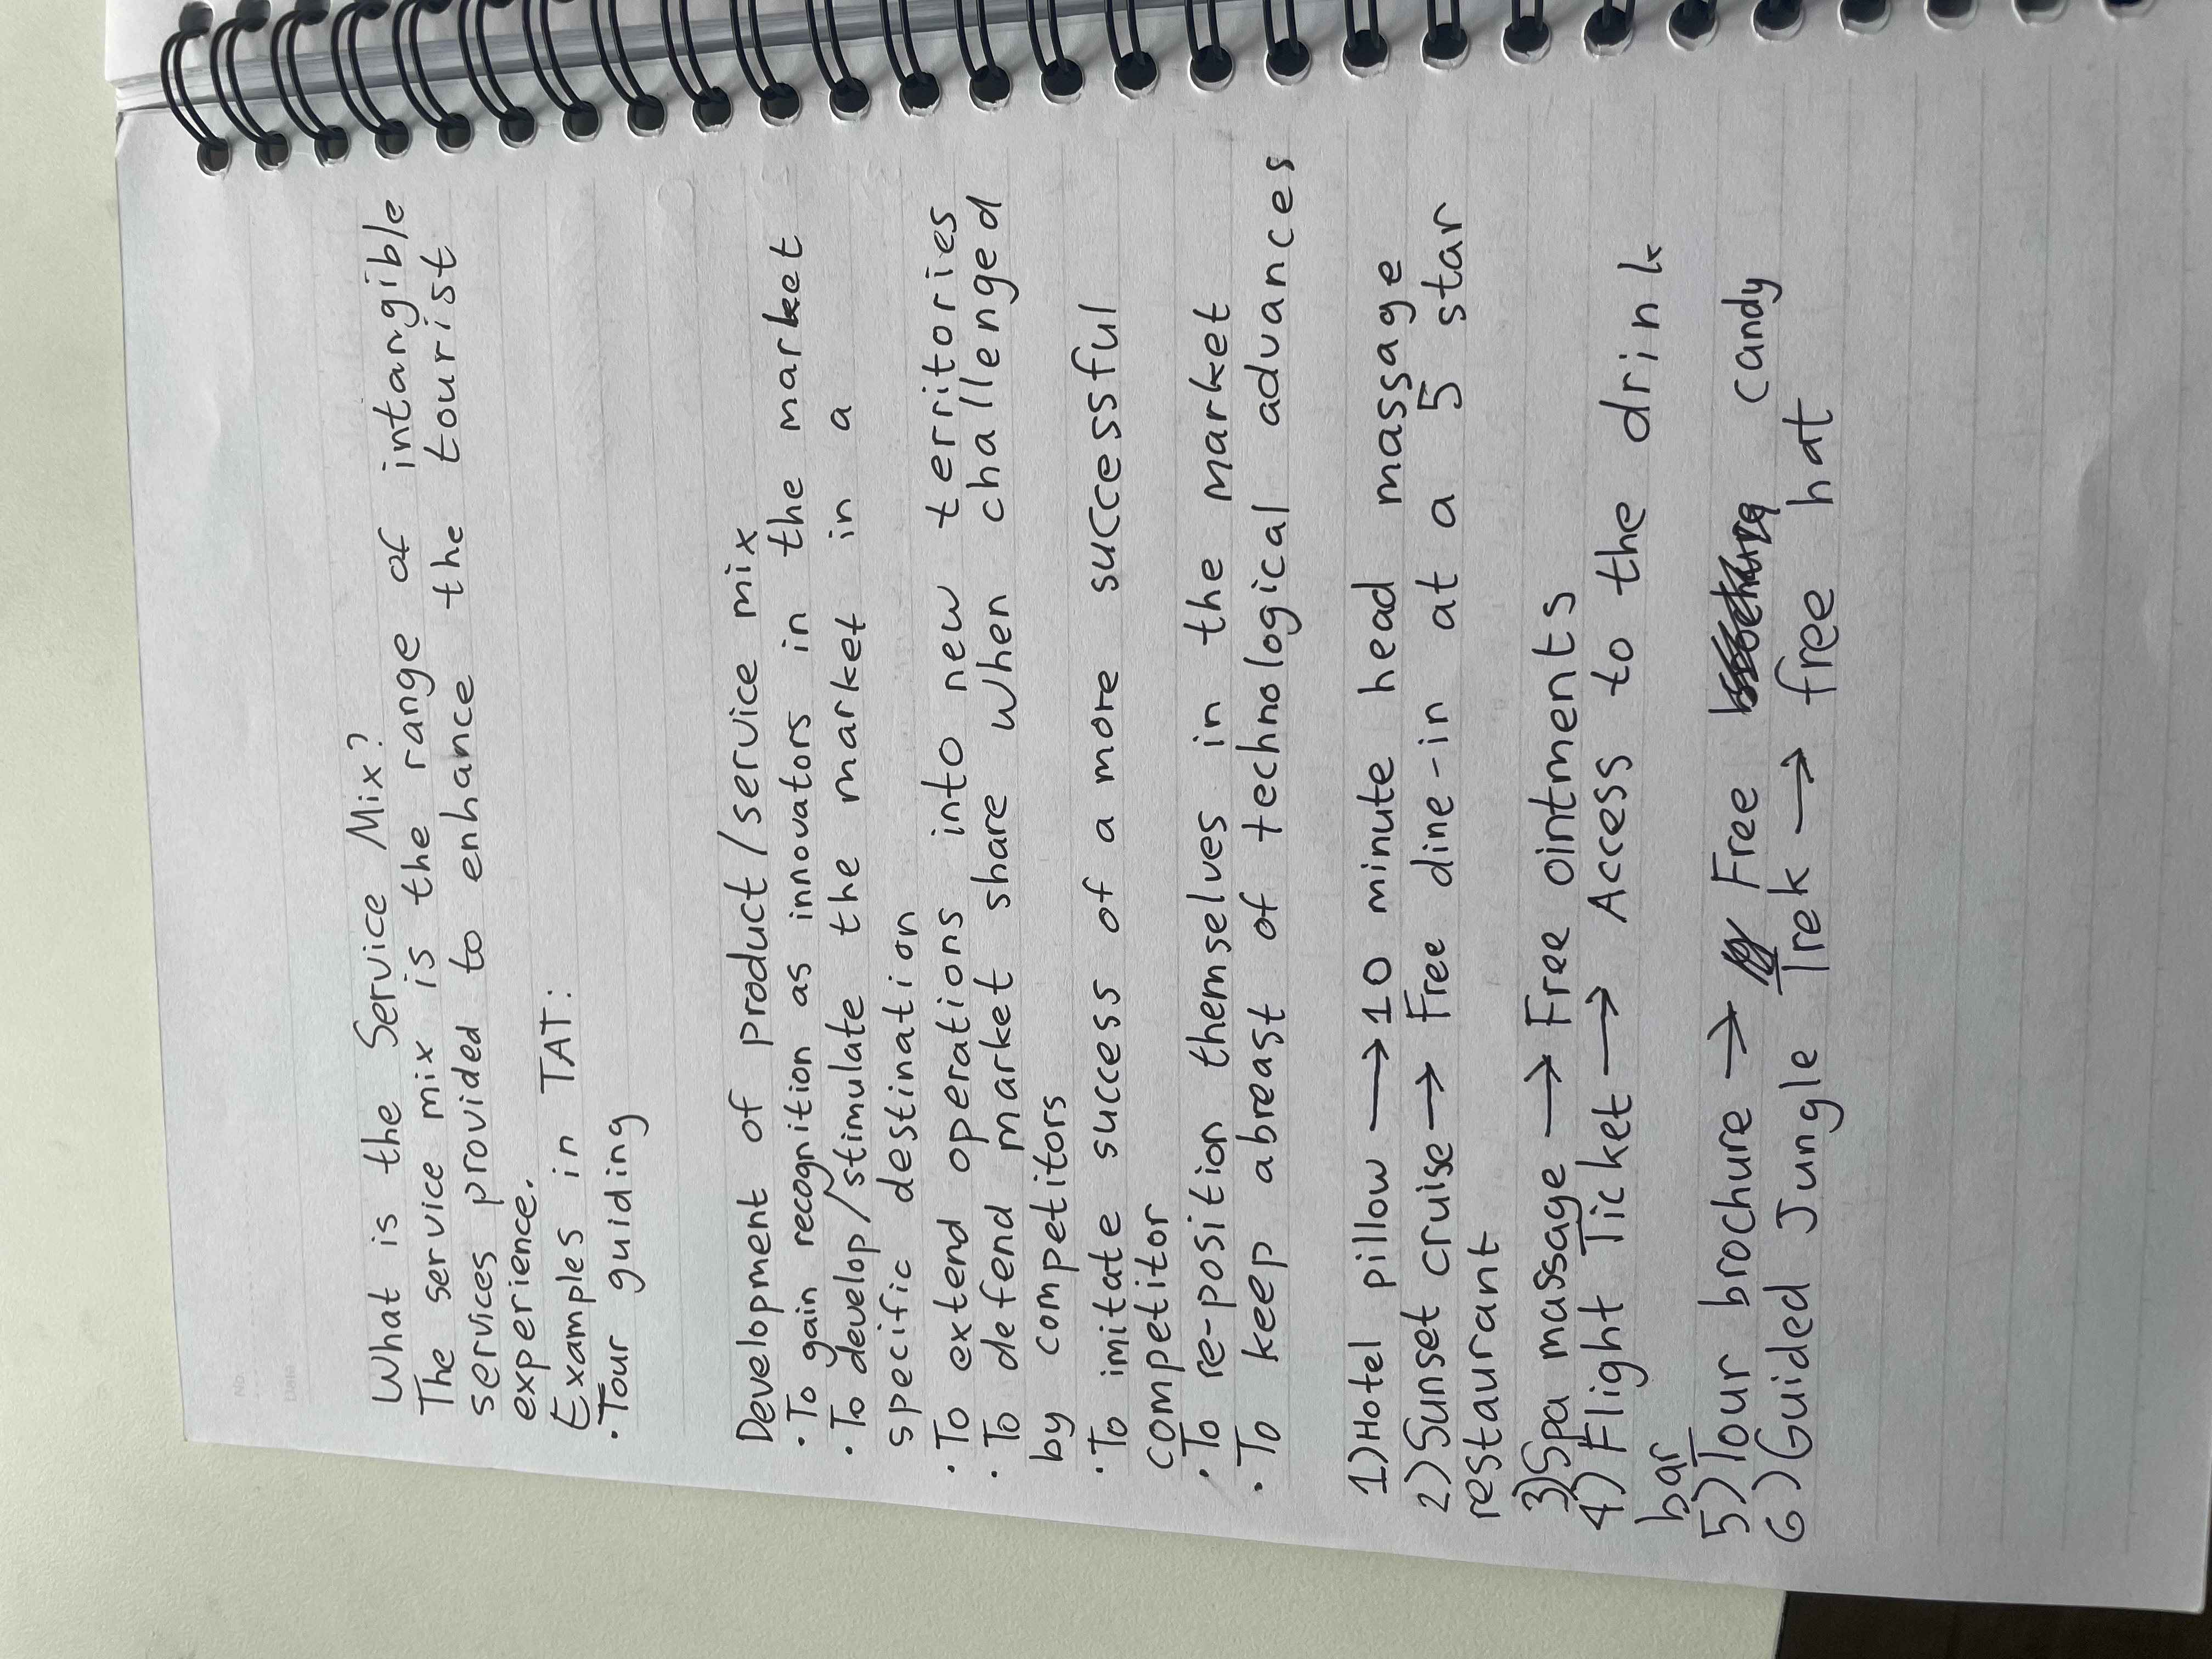 No.
Date
What is the Service Mix?
The service mix is the range of intangible
services provided to enhance the tourist
experience.
Examples in TAT:
· Tour guiding
Development of product/service mix
· To gain recognition as innovators in the market
· To develop/stimulate the market in a
specific destination
· To extend operations into new territories
· To defend market share when challenged
by competitors
· To imitate success of a more successful
competitor
· To re-position themselves in the market
· To keep abreast of technological advances
1) Hotel pillow → 10 minute head massage
2) Sunset cruise → Free dine-in at a 5 star
restaurant
3) Spa massage → Free ointments
4) Flight Ticket → Access to the drink
bar
5) Tour brochure → Free candy
6) Guided Jungle Trek → free hat